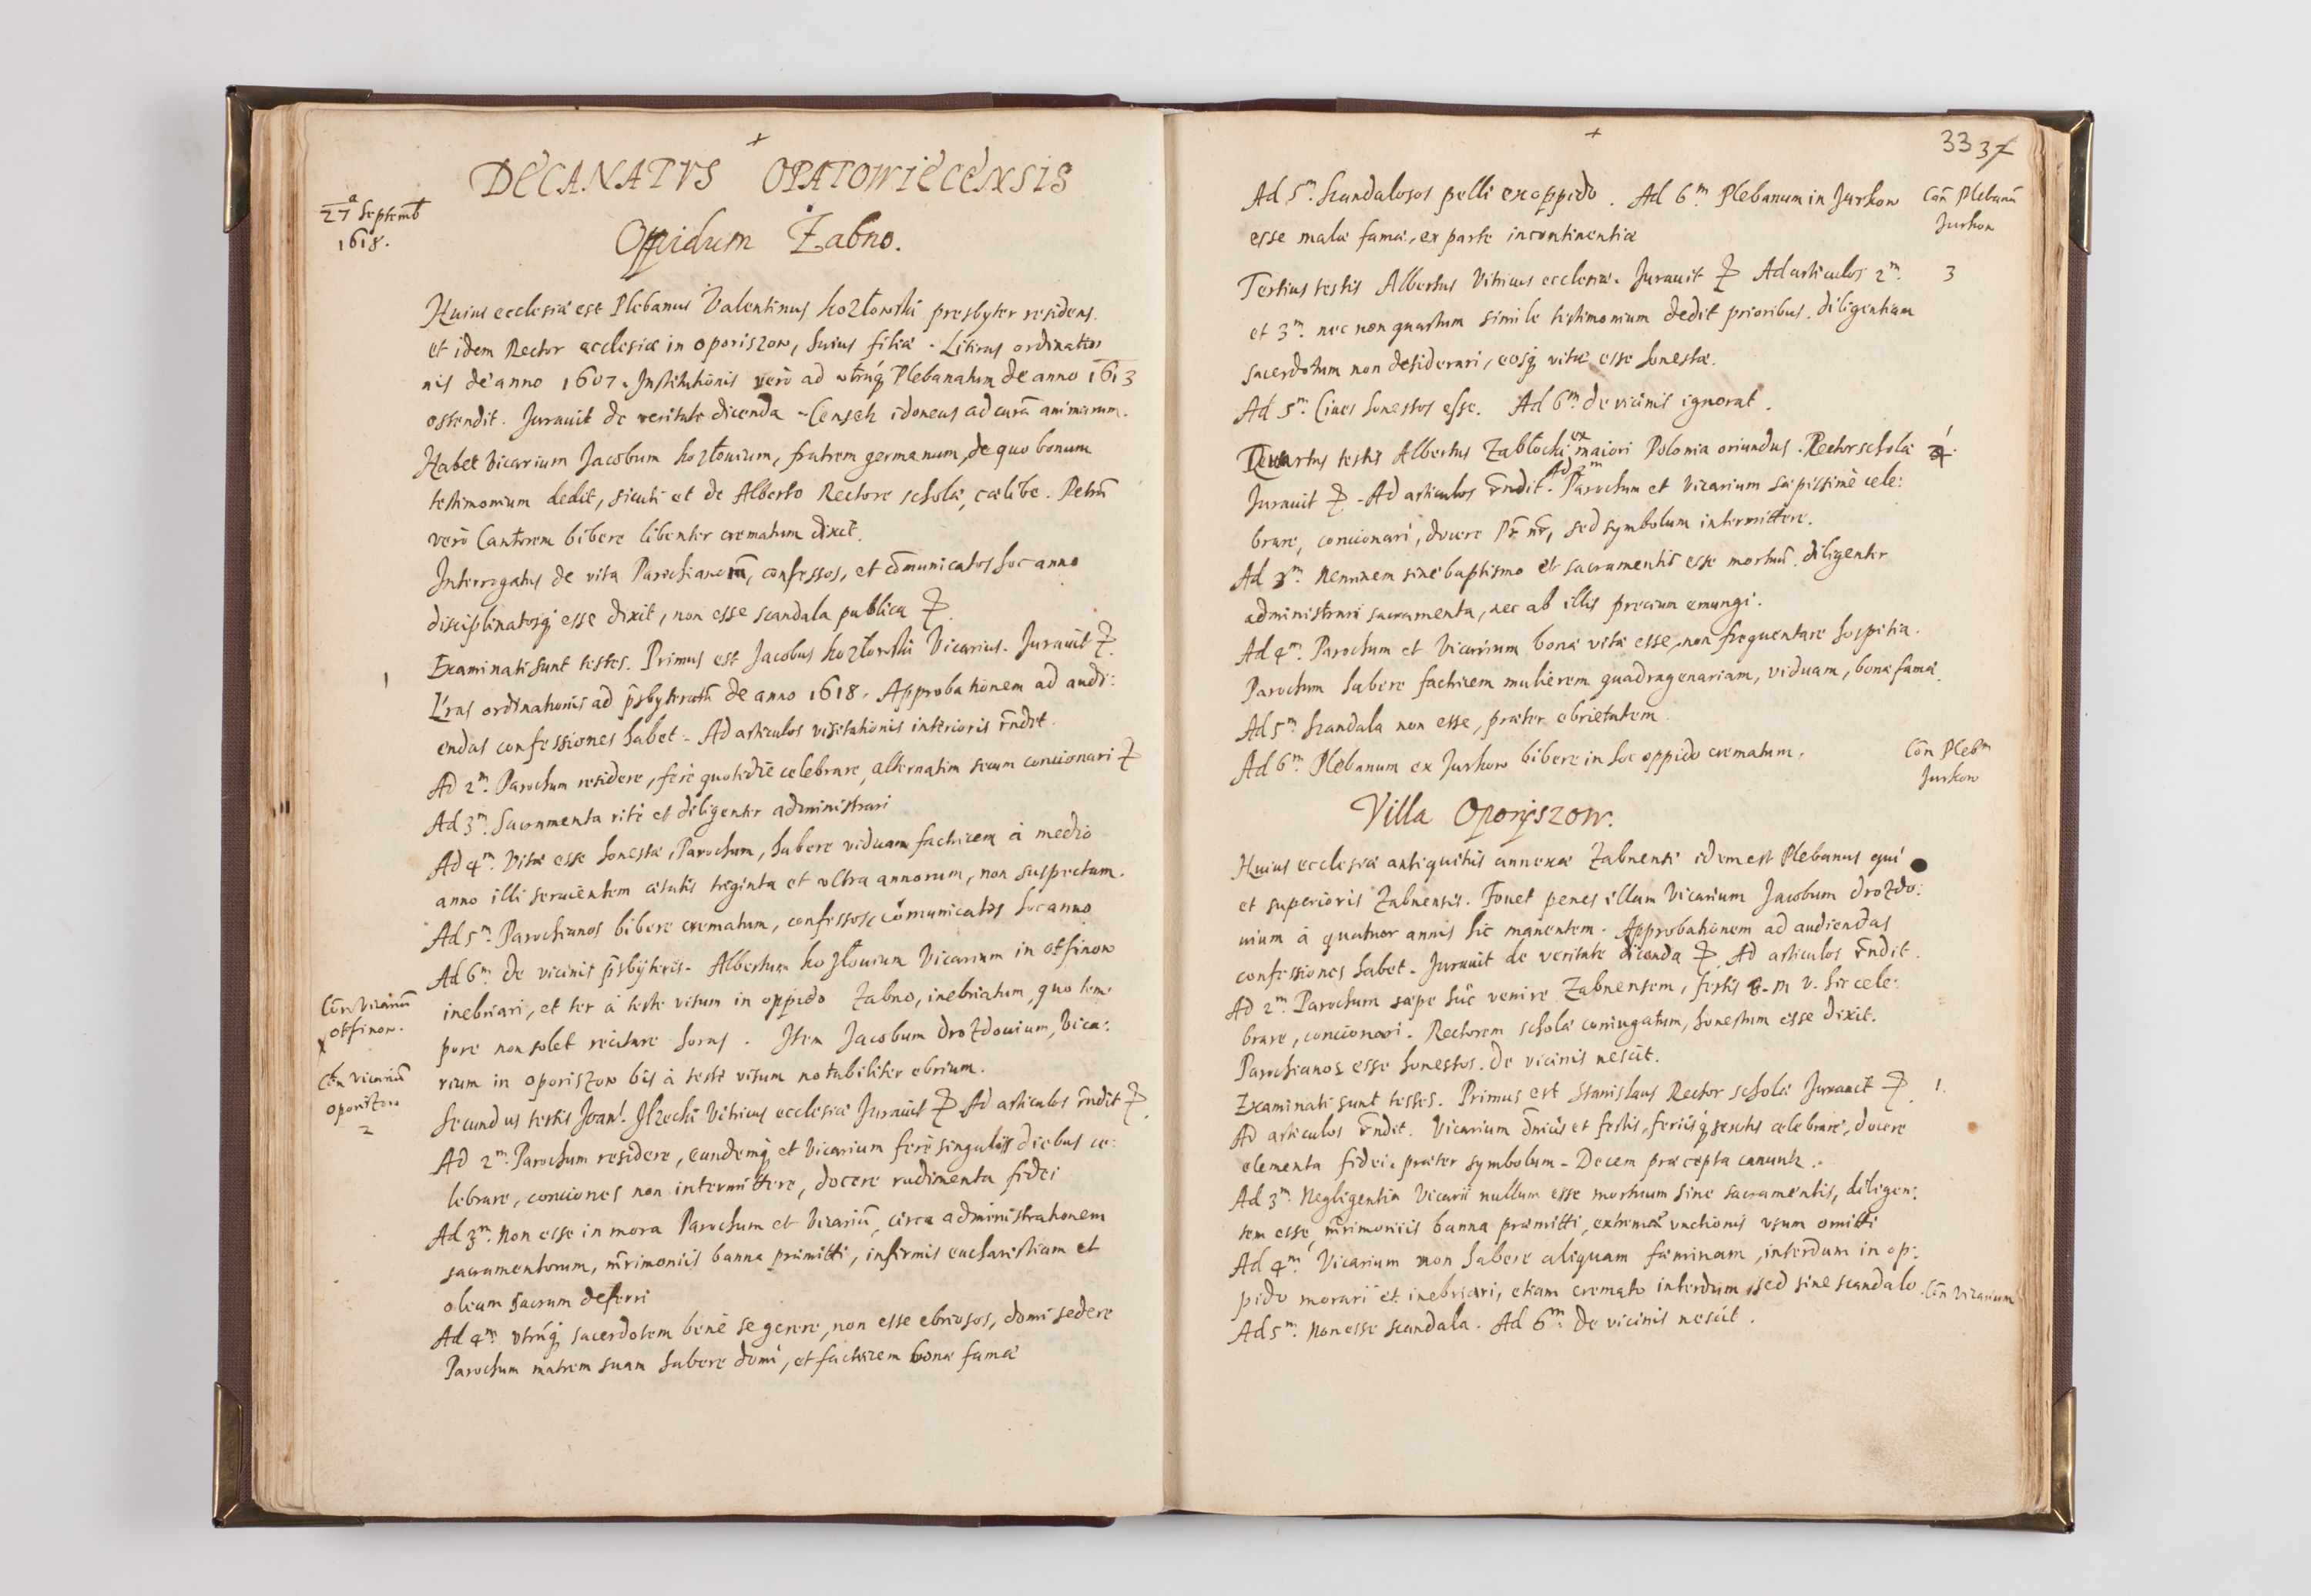 +
DECANATVS OPATOWIECENSIS
27a Septemb
1618.
Oppidum Żabno.
Huius ecclesiæ est Plebanus Valentinus Kozłowski presbyter residens.
et idem Rector ecclesiæ in Oporiszow, huius filiæ. Literas ordinatio
nis de anno 1607. Institutionis verò ad utrūq Plebanatum de anno 1613
ostendit. Jurauit de veritate dicenda. Censetr idoneus ad curā animarum.
Habet Vicarium Jacobum Kozłouium, fratrem germanum, de quo bonum
testimonium dedit, sicuti et de Alberto Rectore scholæ, cælibe. Petrū
verò Cantorem bibere libenter crematum dixit.
Interrogatus de vita Parochianorū, confessos, et cōmunicatos hoc anno
disciplinatosq esse dixit, non esse scandala publica &.
1 Examinati sunt testes. Primus est Jacobus Kozłowski Vicarius. Jurauit &.
L'ras ordinationis ad p̄sbyteratū de anno 1618. Approbationem ad audi:
endas confessiones habet. Ad articulos visitationis interioris r̄ndit.
Ad 2m. Parochum residere, ferè quotidie celebrare, alternatim secum concionari &
Ad 3m. Sacramenta ritè et diligenter administrari
Ad 4m. Vitæ esse honestæ Parochum, habere viduam factricem à medio
anno illi seruientem ætatis triginta et vltra annorum, non suspectam.
Ad 5m. Parochianos bibere crematum, confessos, cōmunicatos hoc anno
Ad 6m. de vicinis p̄sbyteris. Albertum Kozłouium Vicarium in Otfinow
Cōn Vicariū
Otfinow.
inebriari, et ter à teste visum in oppido Zabno, inebriatum, quo tem:
pore non solet recitare horas. Item Jacobum Drozdouium, Vica:
Cōn Vicariū
Oporiszow
2
rium in Oporiszow bis à teste visum notabiliter ebrium.
Secundus testis Joan! Ilzecki Vitricus ecclesiæ Jurauit &. Ad articulos r̄ndit &.
Ad 2m. Parochum residere, eundemq et Vicarium ferè singulis diebus ce:
lebrare, conciones non intermittere, docere rudimenta fidei
Ad 3m. Non esse in mora Parochum et Vicariū, circa administrationem
sacramentorum, m̄rimoniis banna præmitti, infirmis eucharistiam et
oleum sacrum deferri
Ad 4m. vtrūq sacerdotem benè se gerere, non esse ebriosos, domi sedere
Parochum matrem suam habere domi, et factricem bonæ famæ
+
33 37
Ad 5m. Scandalosos pelli ex oppido. Ad 6m. Plebanum in Jurkow
Cōn Plebanū
Jurkow
esse malæ famæ, ex parte incontinentiæ
Tertius testis Albertus Vitricus ecclesiæ. Jurauit &. Ad articulos 2m. 3
et 3m. nec non quartum simile testimonium dedit prioribus. diligentiam
sacerdotum non desiderari, eosq vitæ esse honestæ.
Ad 5m. Ciues honestos esse. Ad 6m. de vicinis ignorat.
Quartus testis Albertus Zabłocki ex maiori Polonia oriundus. Rector scholæ 4.
Jurauit &. Ad articulos r̄ndit. Ad 2m Parochum et Vicarium sæpissimè cele:
brare, concionari, docere Pr̄ nr̄, sed symbolum intermittere.
Ad 3m. Neminem sine baptismo et sacramentis esse mortuū. diligenter
administrari sacramenta, nec ab illis precium emungi.
Ad 4m. Parochum et Vicarium bonæ vitæ esse, non frequentare hospitia.
Parochum habere factricem mulierem quadragenariam, viduam, bonæ famæ.
Ad 5m. Scandala non esse, præter ebrietatem.
Ad 6m. Plebanum ex Jurkow bibere in hoc oppido crematum.
Cōn Plebm
Jurkow
Villa Oporiszow.
Huius ecclesiæ antiquitus annexæ Zabnensi idem est Plebanus qui
et superioris Zabnensis. Fouet penes illam Vicarium Jacobum Drozdo:
uium à quatuor annis hic manentem. Approbationem ad audiendas
confessiones habet. Jurauit de veritate dicenda &. Ad articulos r̄ndit.
Ad 2m. Parochum sæpe huc venire Zabnensem, festis B. M V. hic cele:
brare, concionari. Rectorem scholæ coniugatum, honestum esse dixit.
Parochianos esse honestos. de vicinis nescit.
Examinati sunt testes. Primus est Stanislaus Rector scholæ Jurauit &. 1.
Ad articulos r̄ndit. Vicarium d̄nicis et festis, feriisq sextis celebrare, docere
elementa fidei, præter symbolum. Decem præcepta canuntr.
Ad 3m. Negligentia Vicarii nullum esse mortuum sine sacramentis, diligen:
tem esse, m̄rimoniis banna præmitti, extremæ vnctionis vsum omitti
Ad 4m. Vicarium non habere aliquam fæminam, interdum in op:
pido morari et inebriari, etiam cremato interdum, sed sine scandalo. Cōn Vicarium
Ad 5m. Non esse scandala. Ad 6m. de vicinis nescit.